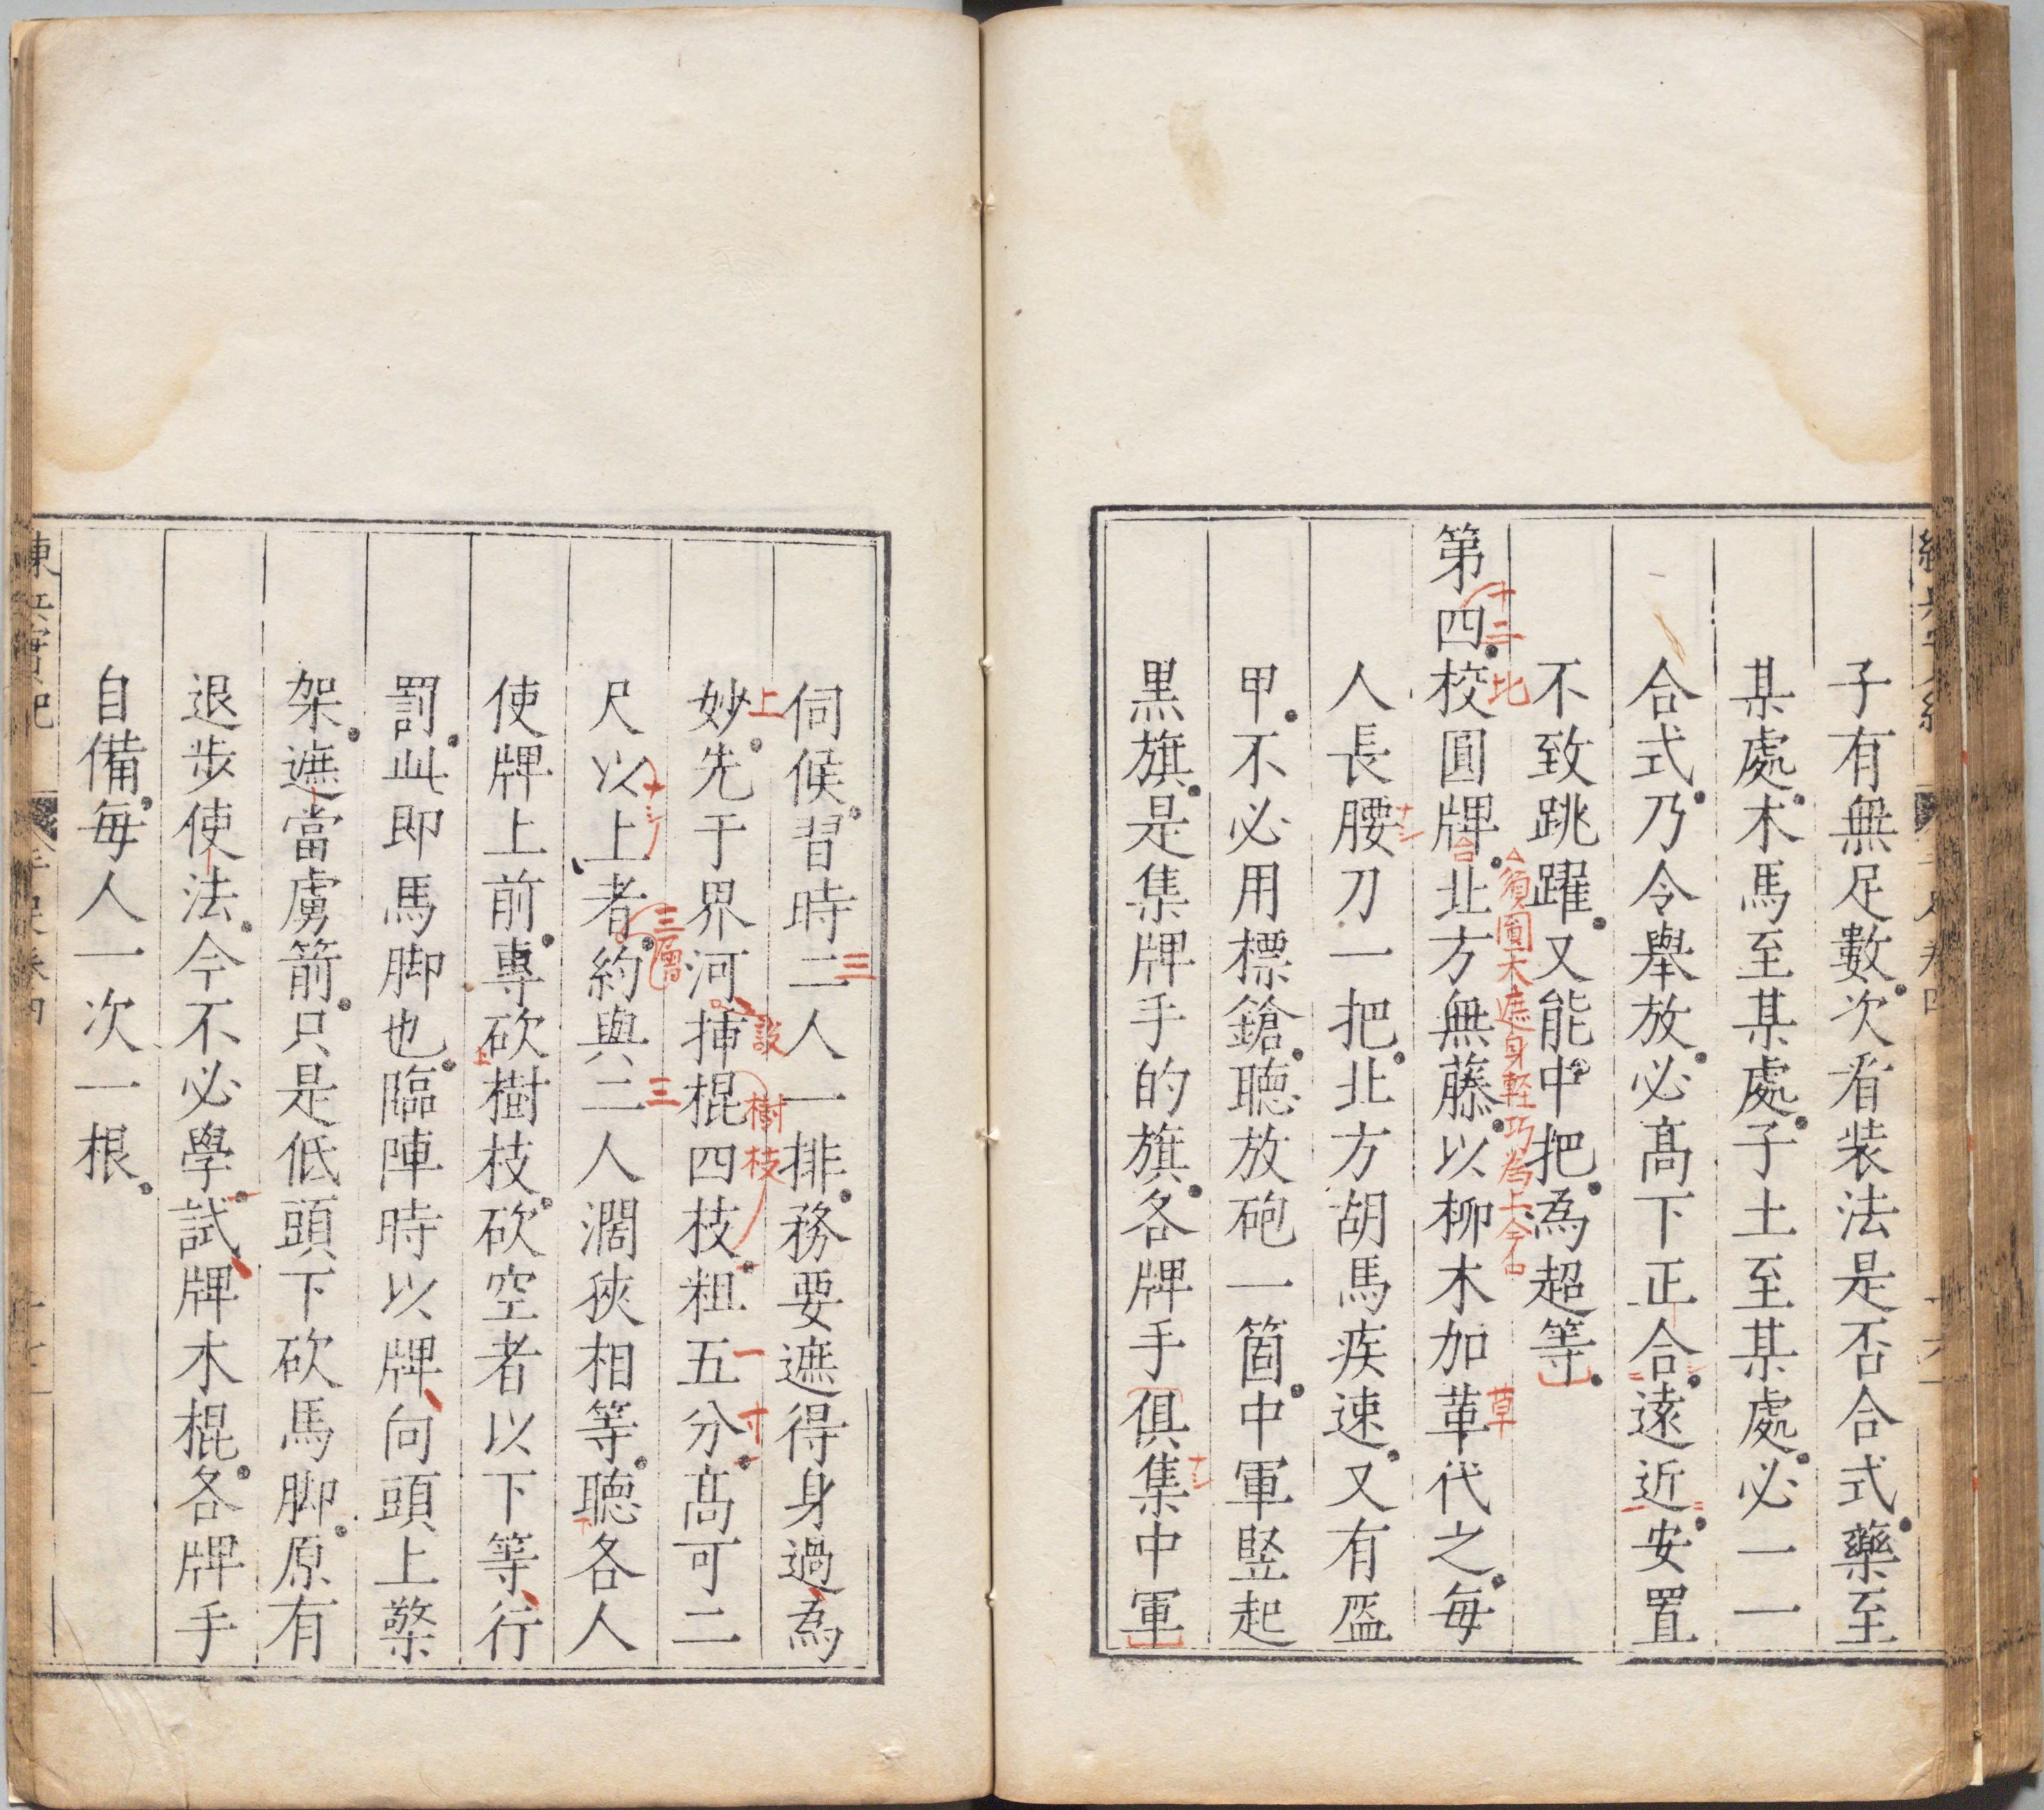 子有無足數次看装法是否合式藥至
某處木馬至某處子土至某處必一一
合式乃令舉放必髙下正合遠近安置
不致跳躍又能中把為超等
第四校圓牌北方無藤以柳木加革代之每
十二
比
△須圓木遮身輕巧為上今
草
人長腰刀一把北方胡馬疾速又有盔
甲不必用標鎗聽放砲一箇中軍竪起
黒旗是集牌手的旗各牌手俱集中軍
伺候習時二人一排務要遮得身過為
三
妙先于界河揷棍四枝粗五分髙可二
上
設
樹枝
一寸
尺以上者約與二人濶狹相等聽各人
三層
三
使牌上前專砍樹枝砍空者以下等行
上
罰此即馬脚也臨陣時以牌向頭上擎
架遮當虜箭只是低頭下砍馬脚原有
退步使法今不必學試牌木棍各牌手
自備每人一次一根